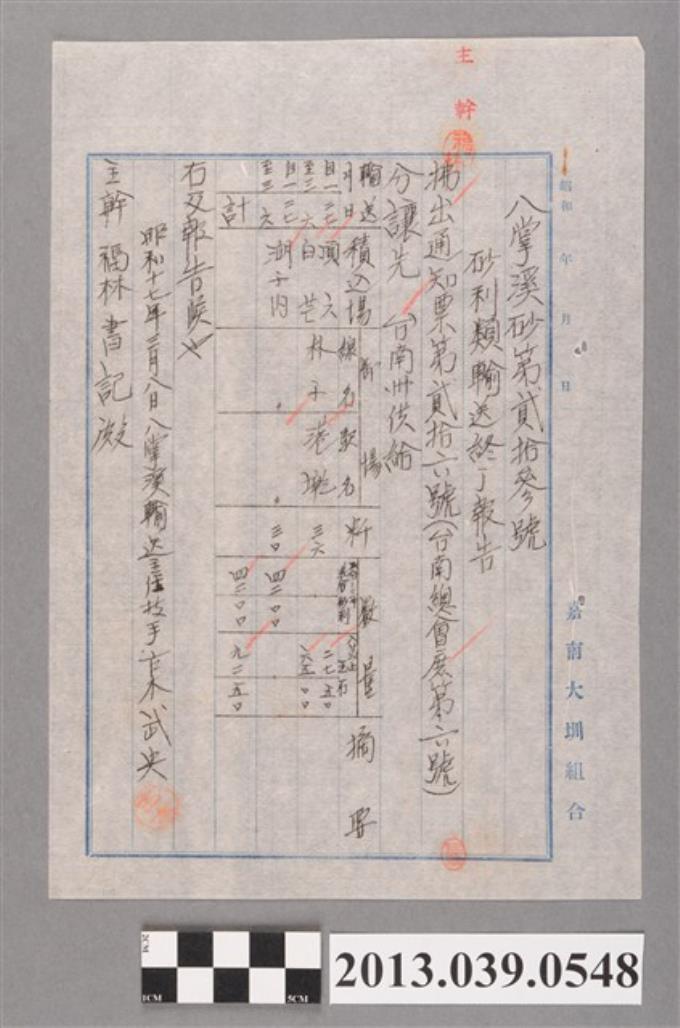 主幹
昭和　年　月　日
嘉南大圳組合
八掌溪砂第貳拾參號
砂利類輸送終了報告
拂出通知票第貳拾六號(台南總會庶第六號)
分讓先　台南州供給
輸送月日　積込場　卸場　線名　駅名　粁　數量　摘要
自一、二七　至三、六　頂六　林子　港墘　三六　二七五〇
白芒　六五〇〇
自一、二七　至三、六　湖子内　〃　〃　三〇　四二〇〇
計　四二〇〇　九二五〇
右及報告候也
昭和十七年三月八日八掌溪輸送主任技手
主幹　福林書記殿
2CM
1CM
5CM
2013.039.0548